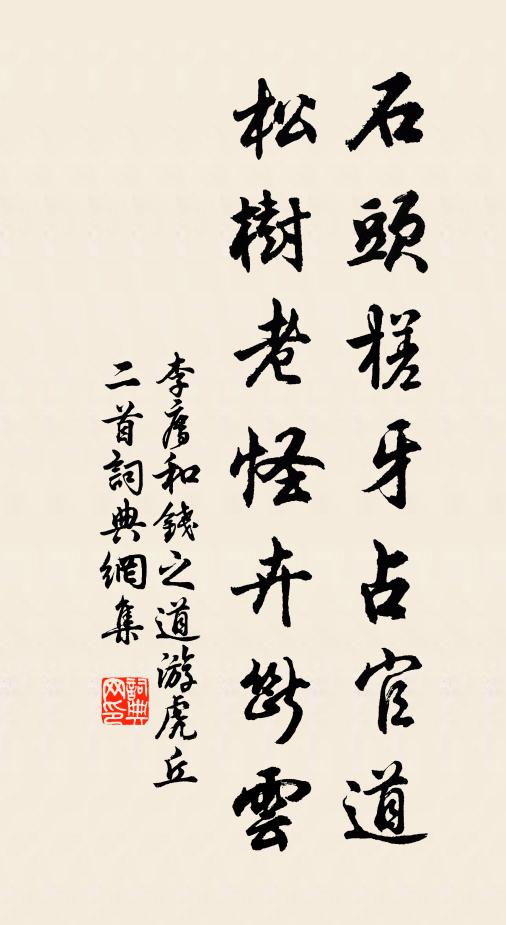 石頭槎牙占官道
松樹老怪卉斷雲
李廌和錢之道游虎丘
二首詞典網集
詞典
网印